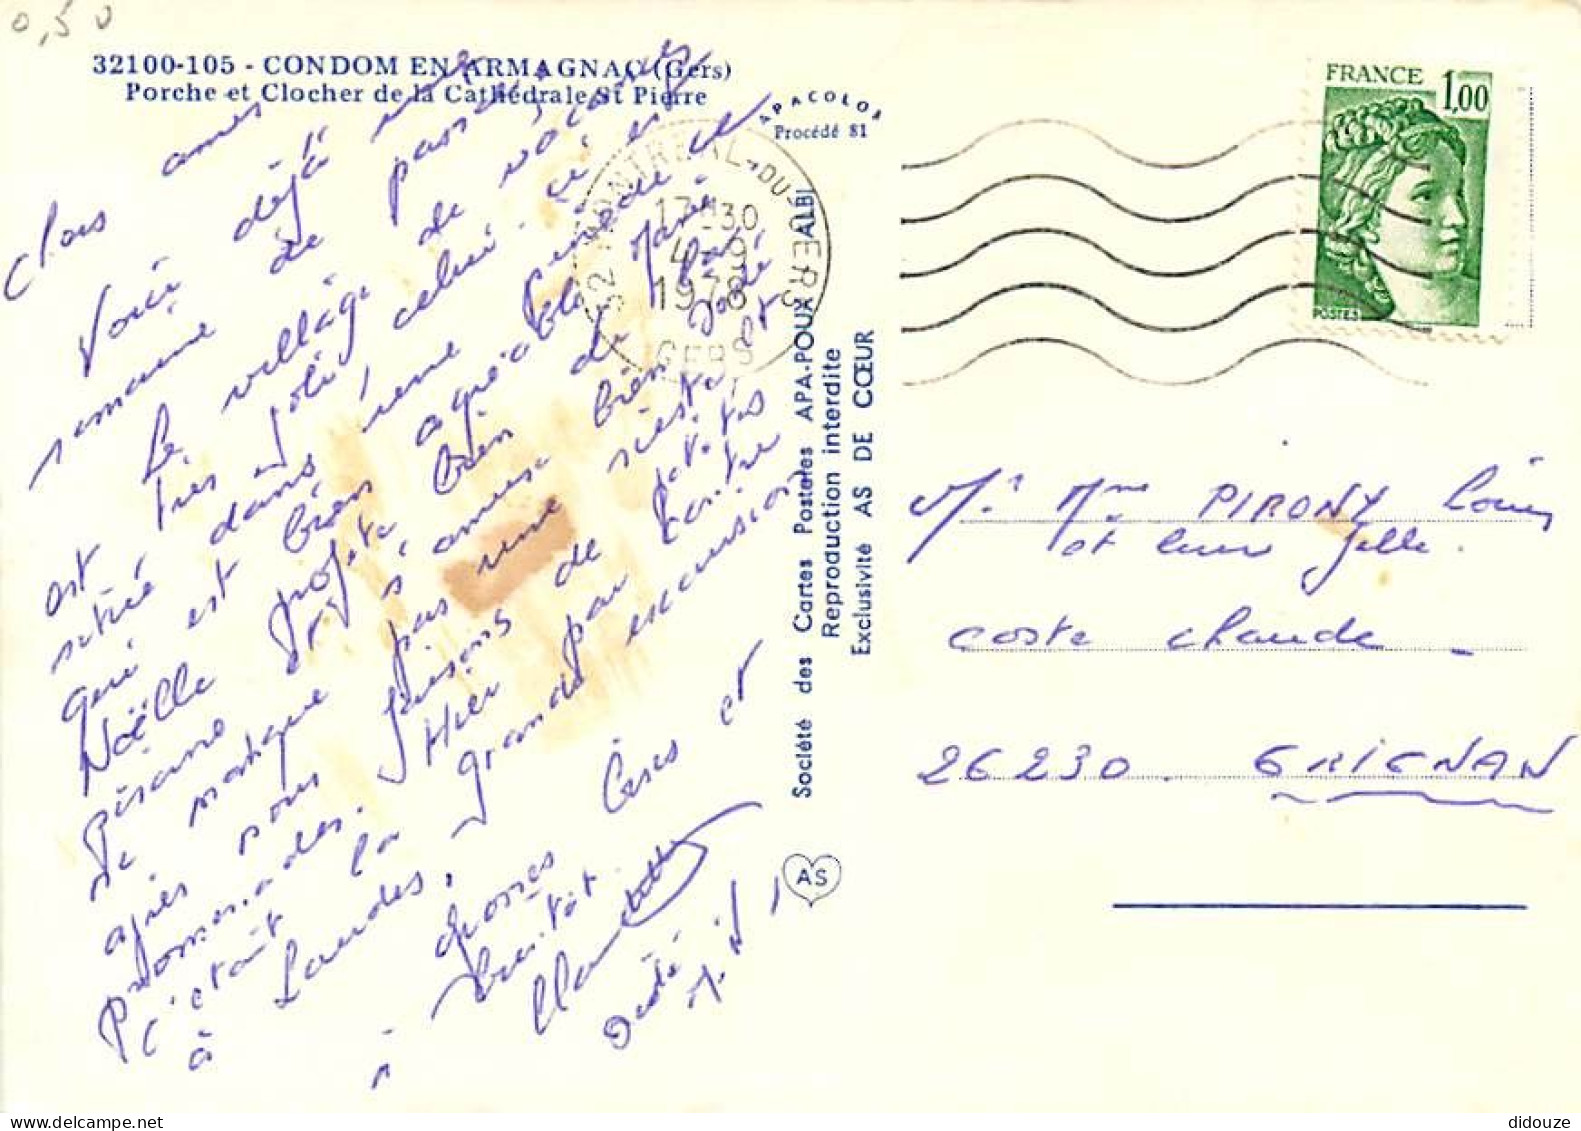 0,50
32100-105 - CONDOM EN ARMAGNAC (Gers)
Porche et Clocher de la Cathédrale St Pierre
APACOLOR
Procédé 81
Chers amis
Voici déjà une
semaine de passée,
Le village de vacances
est très joli, celui-ci est
situé dans une
qui est bien agréable
Noëlle profite bien de la
piscine et s'amuse bien
ne manque pas une sieste et
après nous faisons de petites
promenades. Hier par contre
c'était la grande excursion
à Landes,
Grosses bises et
à bientôt.
32 MONTREAL-DU-GERS
17H30
4-9
1978
GERS
Société des Cartes Postales APA-POUX ALBI
Reproduction interdite
Exclusivité AS DE CŒUR
AS
FRANCE 1,00
POSTES
M. Mme PIRONY Louis
et leur fille.
coste chaude -
26230. GRIGNAN
didouze